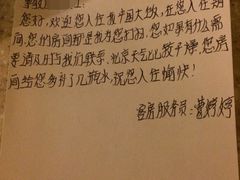 您好,欢迎您入住我中国大饭,在您入住期
间,您的房间都是我为您打扫,您如果有什么需
要请及时与我们联系,北京天气比较干燥,您房
间给您多补了几瓶水,祝您入住愉快!
客房服务员:曹婷婷